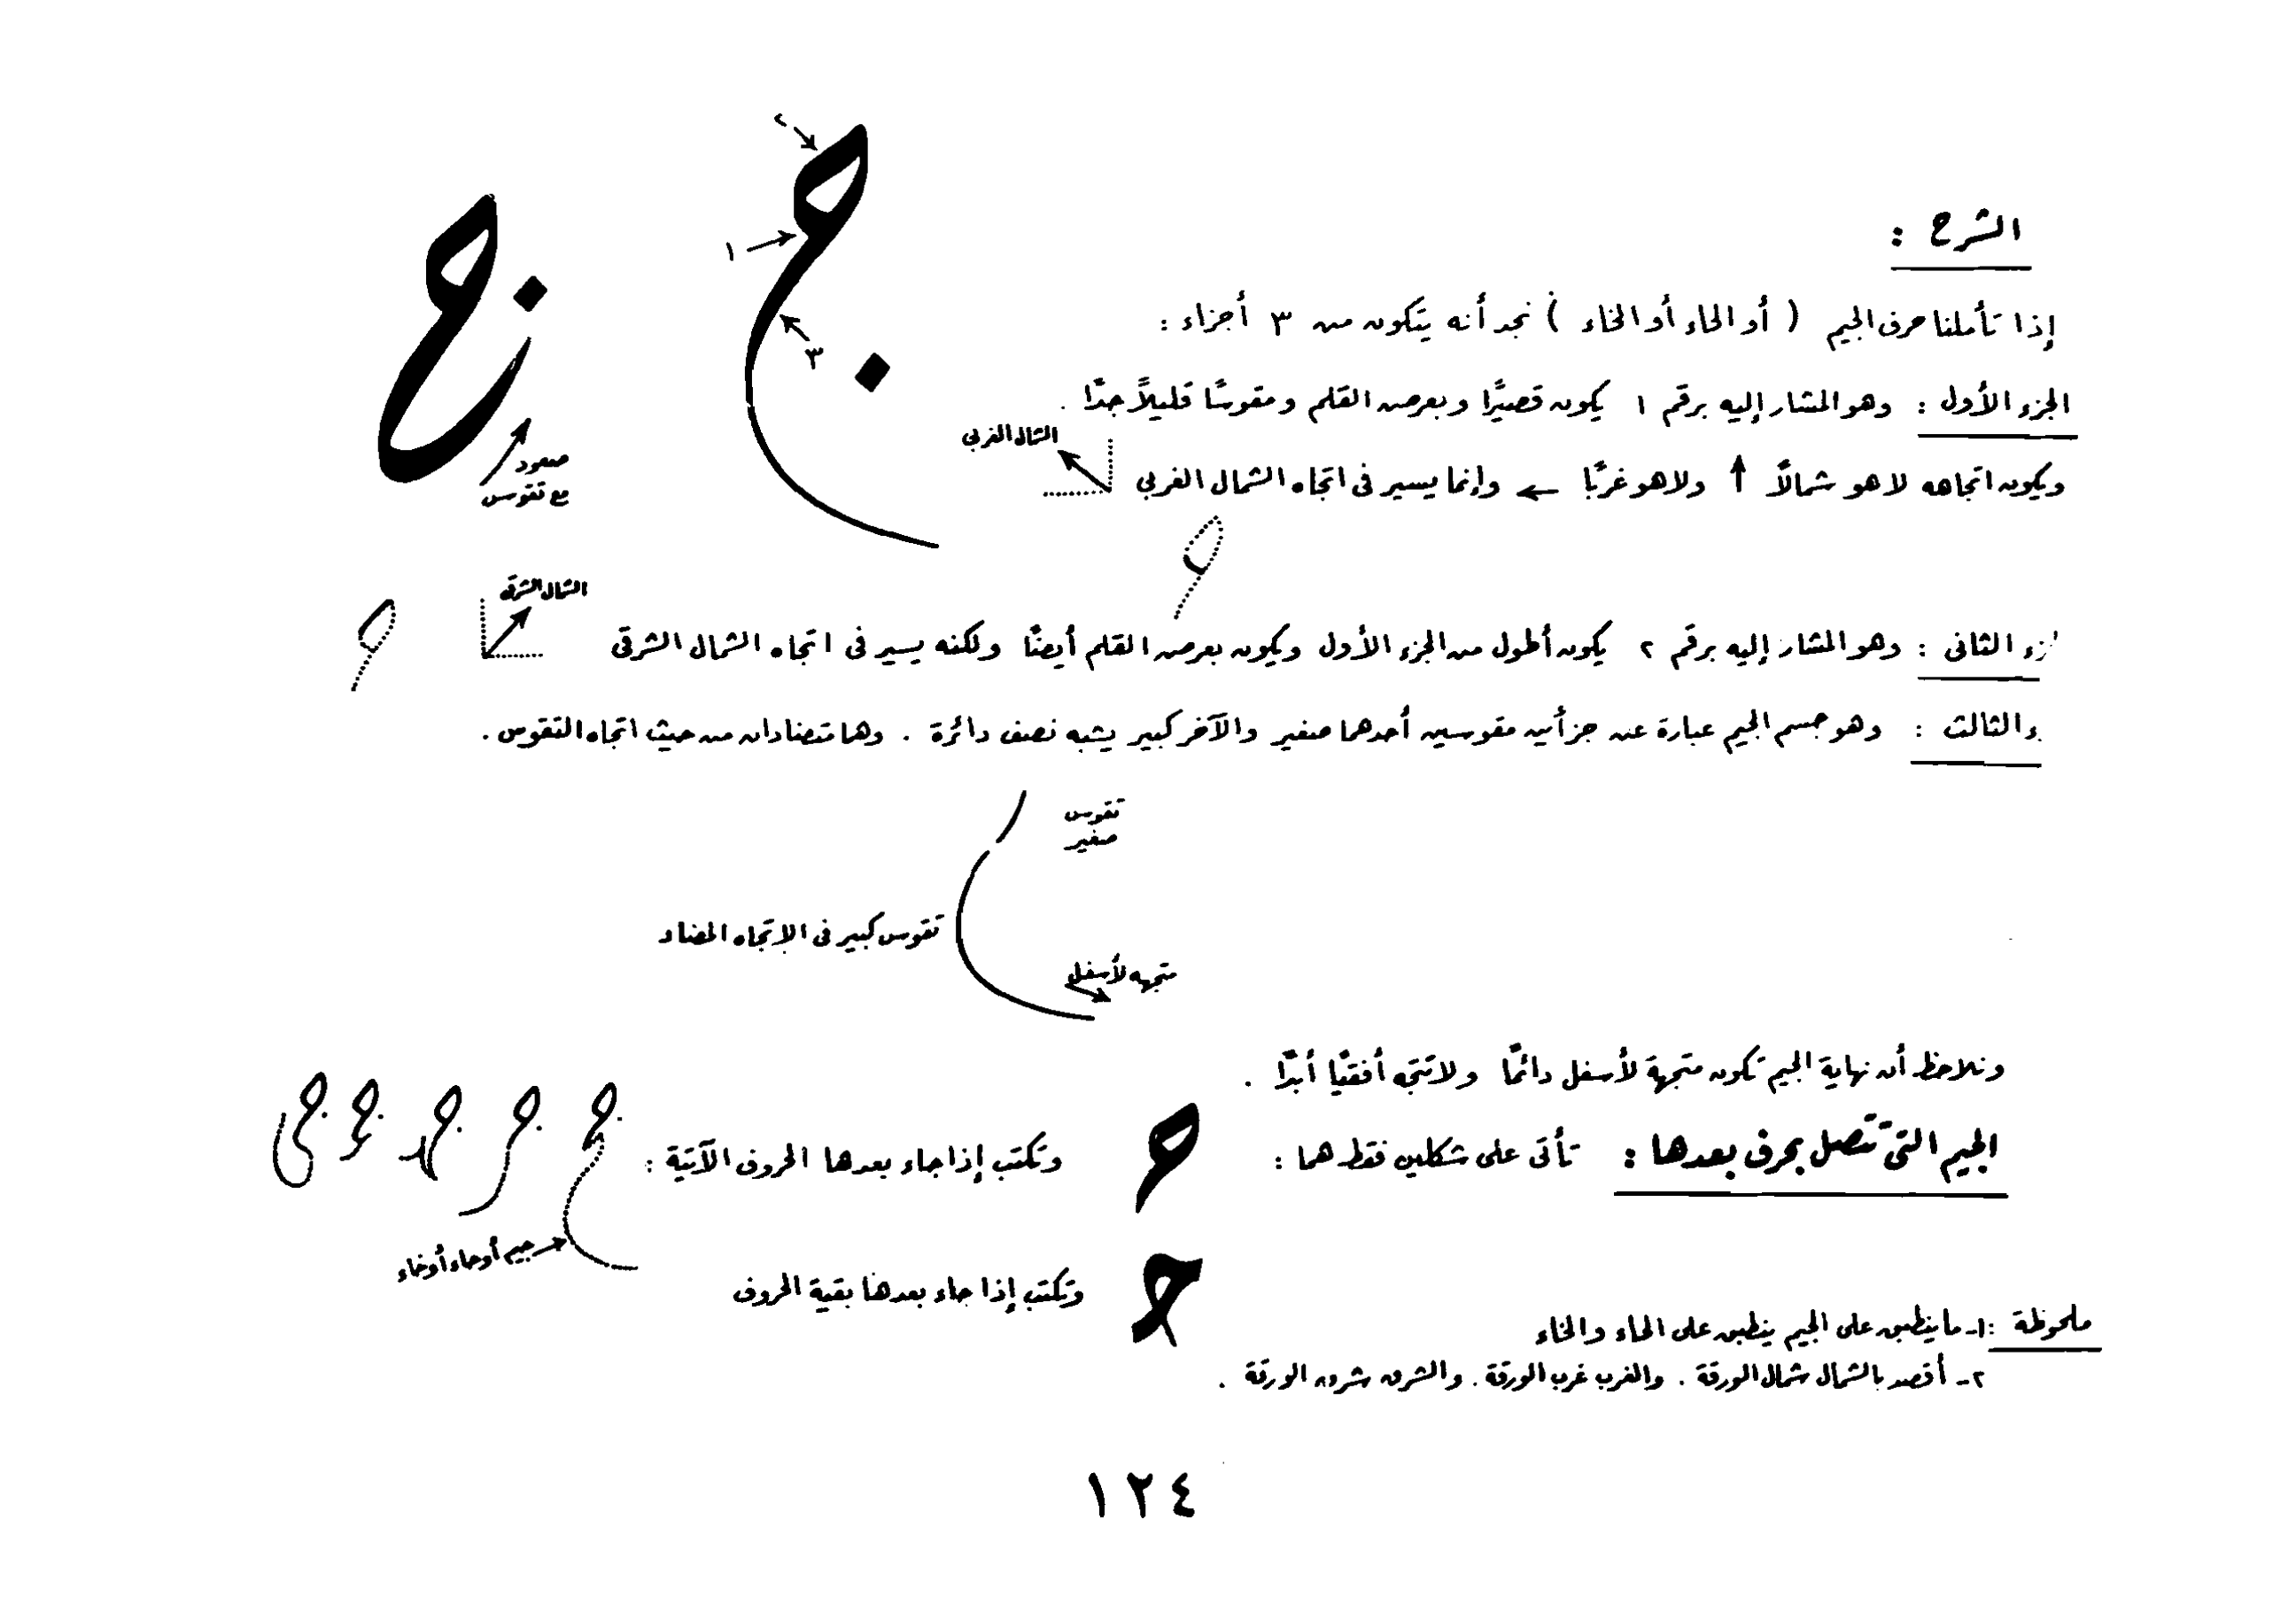 الشرح :
إذا تأملنا حرف الجيم ( أو الحاء أو الخاء ) نجد أنه يتكون من ٣ أجزاء :
الجزء الأول : وهو المشار إليه برقم ١ يكون قصيرًا وبعرض القلم ومقوسًا قليلاً جدًا .
ويكون اتجاهه لا هو شمالاً ↑ ولا هو غربًا ← وإنما يسير فى اتجاه الشمال الغربي
الشمال الغربي
٢
١
٣
صعود
مع تقوس
الشمال الشرقى
زء الثانى : وهو المشار إليه برقم ٢ يكون أطول من الجزء الأول ويكون بعرض القلم أيضًا ولكنه يسير فى اتجاه الشمال الشرقى
ء الثالث : وهو جسم الجيم عبارة عن جزأين مقوسين أحدهما صغير والآخر كبير يشبه نصف دائرة . وهما متضادان من حيث اتجاه التقوس .
تقوس
صغير
تقوس كبير فى الإتجاه المضاد
متجهه لأسفل
ونلاحظ أن نهاية الجيم تكون متجهة لأسفل دائمًا ولا تتجه أفقيًا أبدًا .
الجيم التى تتصل بحرف بعدها : تأتى على شكلين فقط هما :
وتكتب إذا جاء بعدها الحروف الآتية :
جيم أو حاء أو خاء
وتكتب إذا جاء بعدها بقية الحروف
ملحوظة : ١- ما ينطبق على الجيم ينطبق على الحاء والخاء
٢- أقصد بالشمال شمال الورقة . والغرب غرب الورقة . والشرق شرق الورقة .
١٢٤